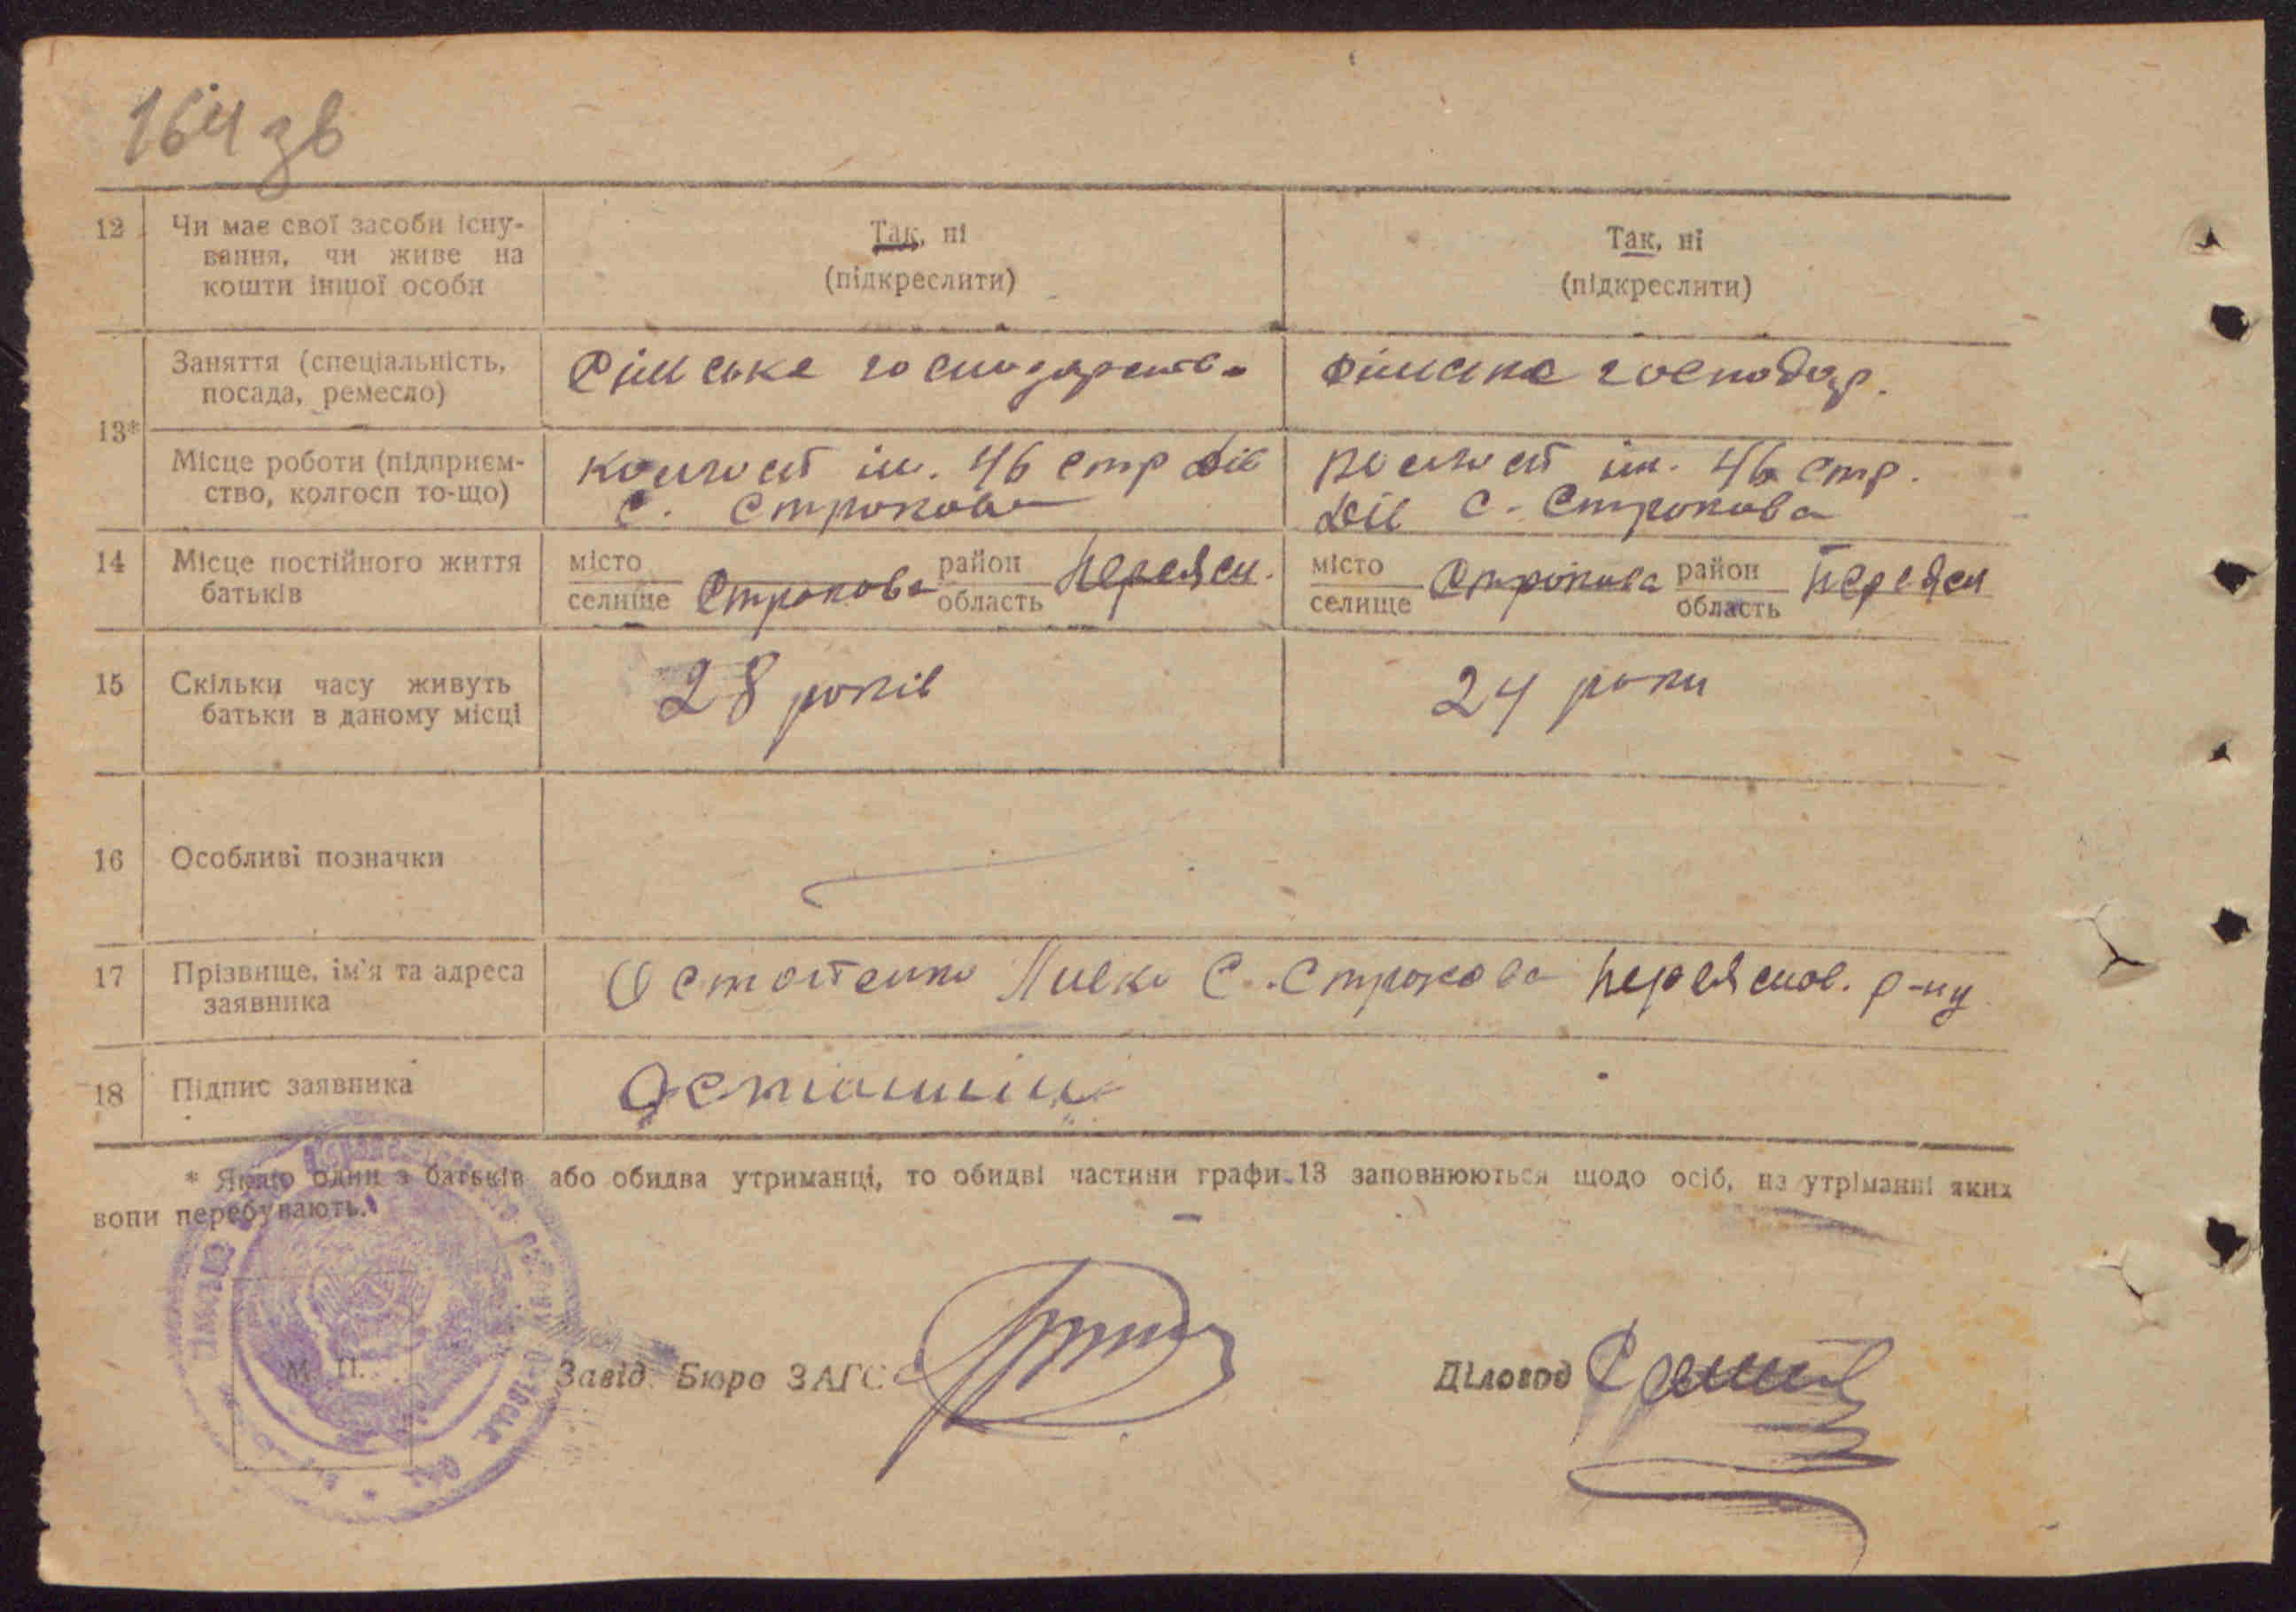 164 зв
12 Чи має свої засоби існу-
вання, чи живе на
кошти іншої особи
Так, ні
(підкреслити)
Так, ні
(підкреслити)
13*
Заняття (спеціальність,
посада, ремесло)
Сільське господарство
Сільське господар.
Місце роботи (підприєм-
ство, колгосп то-що)
колгосп ім. 46 стр див
с. Строкова
колгосп ім. 46 стр.
див с. Строкова
14 Місце постійного життя
батьків
місто
селище Строкова район
область Переясл.
місто
селище Строкова район
область Переясл
15 Скільки часу живуть
батьки в даному місці
28 років
24 роки
16 Особливі позначки
17 Прізвище, ім'я та адреса
заявника
С. Строкова Переяслов. р-ну
18 Підпис заявника
* Якщо один з батьків або обидва утриманці, то обидві частини графи 13 заповнюються щодо осіб, на утріманні яких
вони перебувають.
М. П.
Завід. Бюро ЗАГС
Діловод